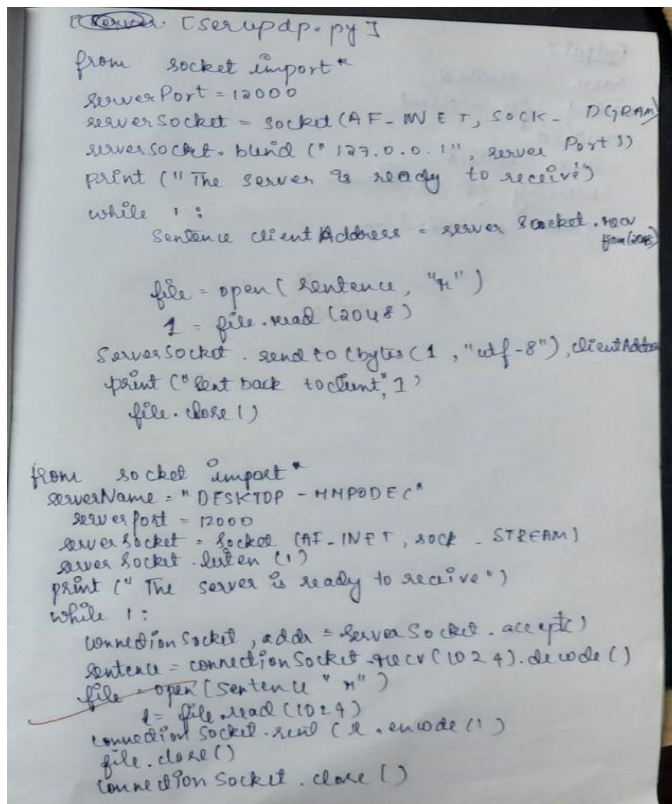 [Server [serupdp.py]
from socket import*
serverPort = 12000
serverSocket = socket(AF-INET, SOCK- DGRAM)
serversocket.bind ("127.0.0.1", server Port))
print ("The server is ready to receive")
while 1 :
Sentence client Address = server Socket.recv
from(2048)
file = open( sentence, "r")
1 = file.read (2048)
ServerSocket.send to (bytes(1, "utf-8"), clientAddress
print ("sent back to client", 1)
file.close()
from socket import*
serverName = "DESKTOP - HMPODEC"
serverport = 12000
serversocket = Socket (AF-INET, sock - STREAM)
server Socket.listen (1)
print (" The server is ready to receive")
while 1 :
connectionSocket, addr = serverSocket.accept()
sentence = connectionSocket.recv(1024).decode()
file = open(sentence "r")
l = file.read(1024)
connection Socket.send (l.encode())
file.close()
connection Socket.close()